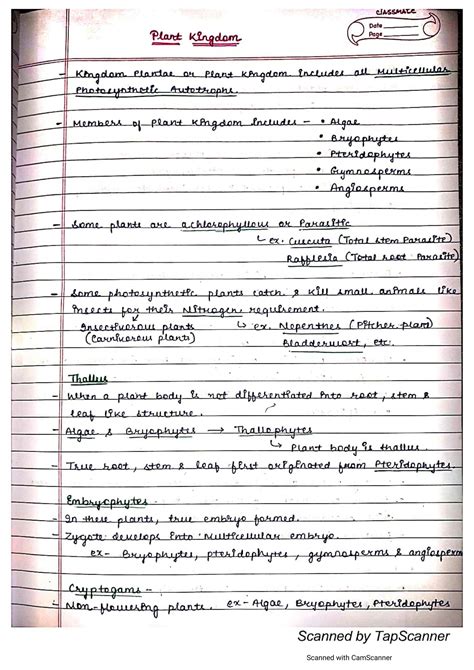 classmate
Date
Page
Plant Kingdom
- Kingdom Plantae or Plant kingdom includes all Multicellular
Photosynthetic Autotrophs.
- Members of Plant Kingdom includes - • Algae
• Bryophytes
• Pteridophytes
• Gymnosperms
• Angiosperms
- Some plants are achlorophyllous or Parasitic
ex. Cuscuta (Total stem Parasite)
Rafflesia (Total root Parasite)
- Some photosynthetic plants catch & kill small animals like
insects for their Nitrogen requirement.
Insectivorous plants ex. Nepenthes (Pitcher plant)
(Carnivorous plants) Bladderwort, etc.
Thallus
- When a plant body is not differentiated into root, stem &
leaf like structure.
- Algae & Bryophytes → Thallophytes
Plant body is thallus.
- True root, stem & leaf first originated from Pteridophytes.
Embryophytes -
- In these plants, true embryo formed.
- Zygote develops into Multicellular embryo.
ex- Bryophytes, pteridophytes, gymnosperms & angiosperm
Cryptogams -
- Non-flowering plants. ex- Algae, Bryophytes, Pteridophytes
Scanned by TapScanner
Scanned with CamScanner